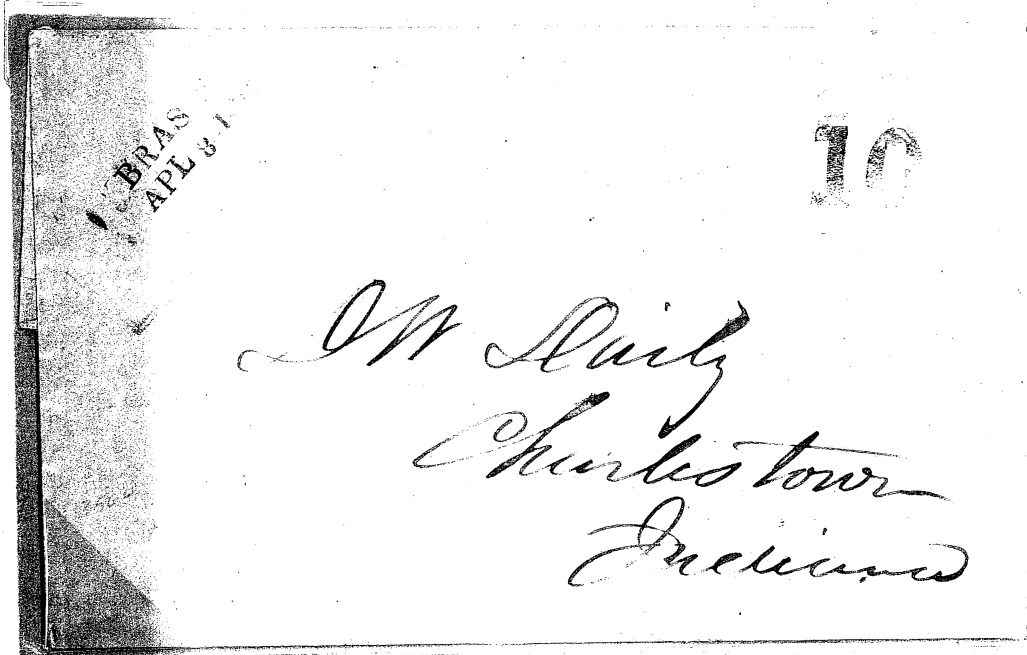 BRAS
APL 8
10
D W Daily
Charlestown
Indiana